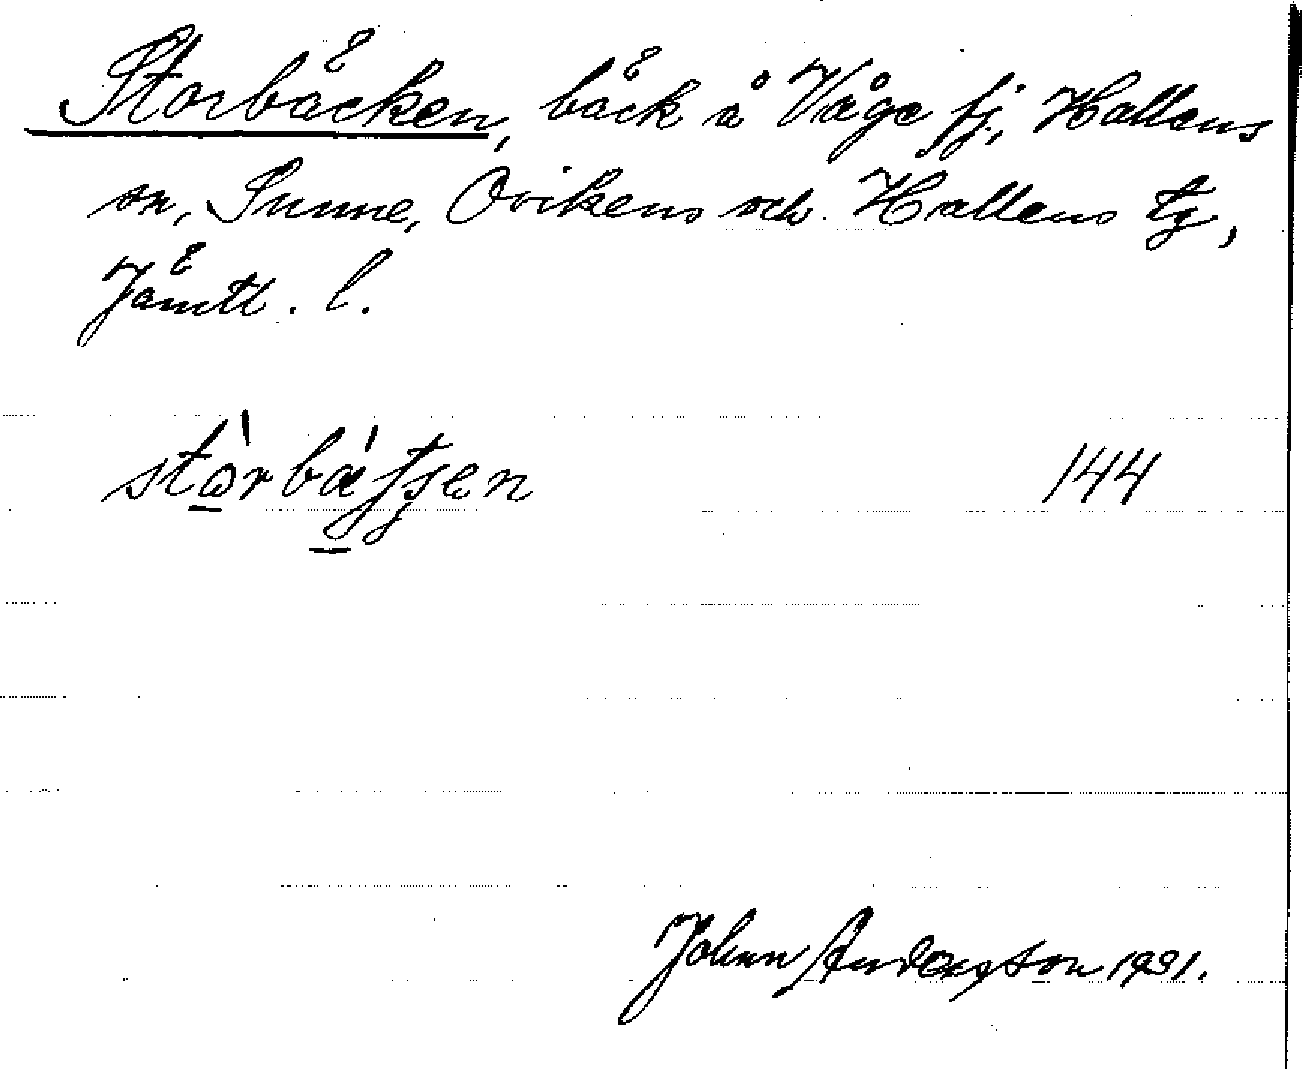 Storbäcken, bäck å Våge fj, Hallens
sn, Sunne, Ovikens och Hallens tg,
Jämtl. l.
144
Johan Anderzson 1931.